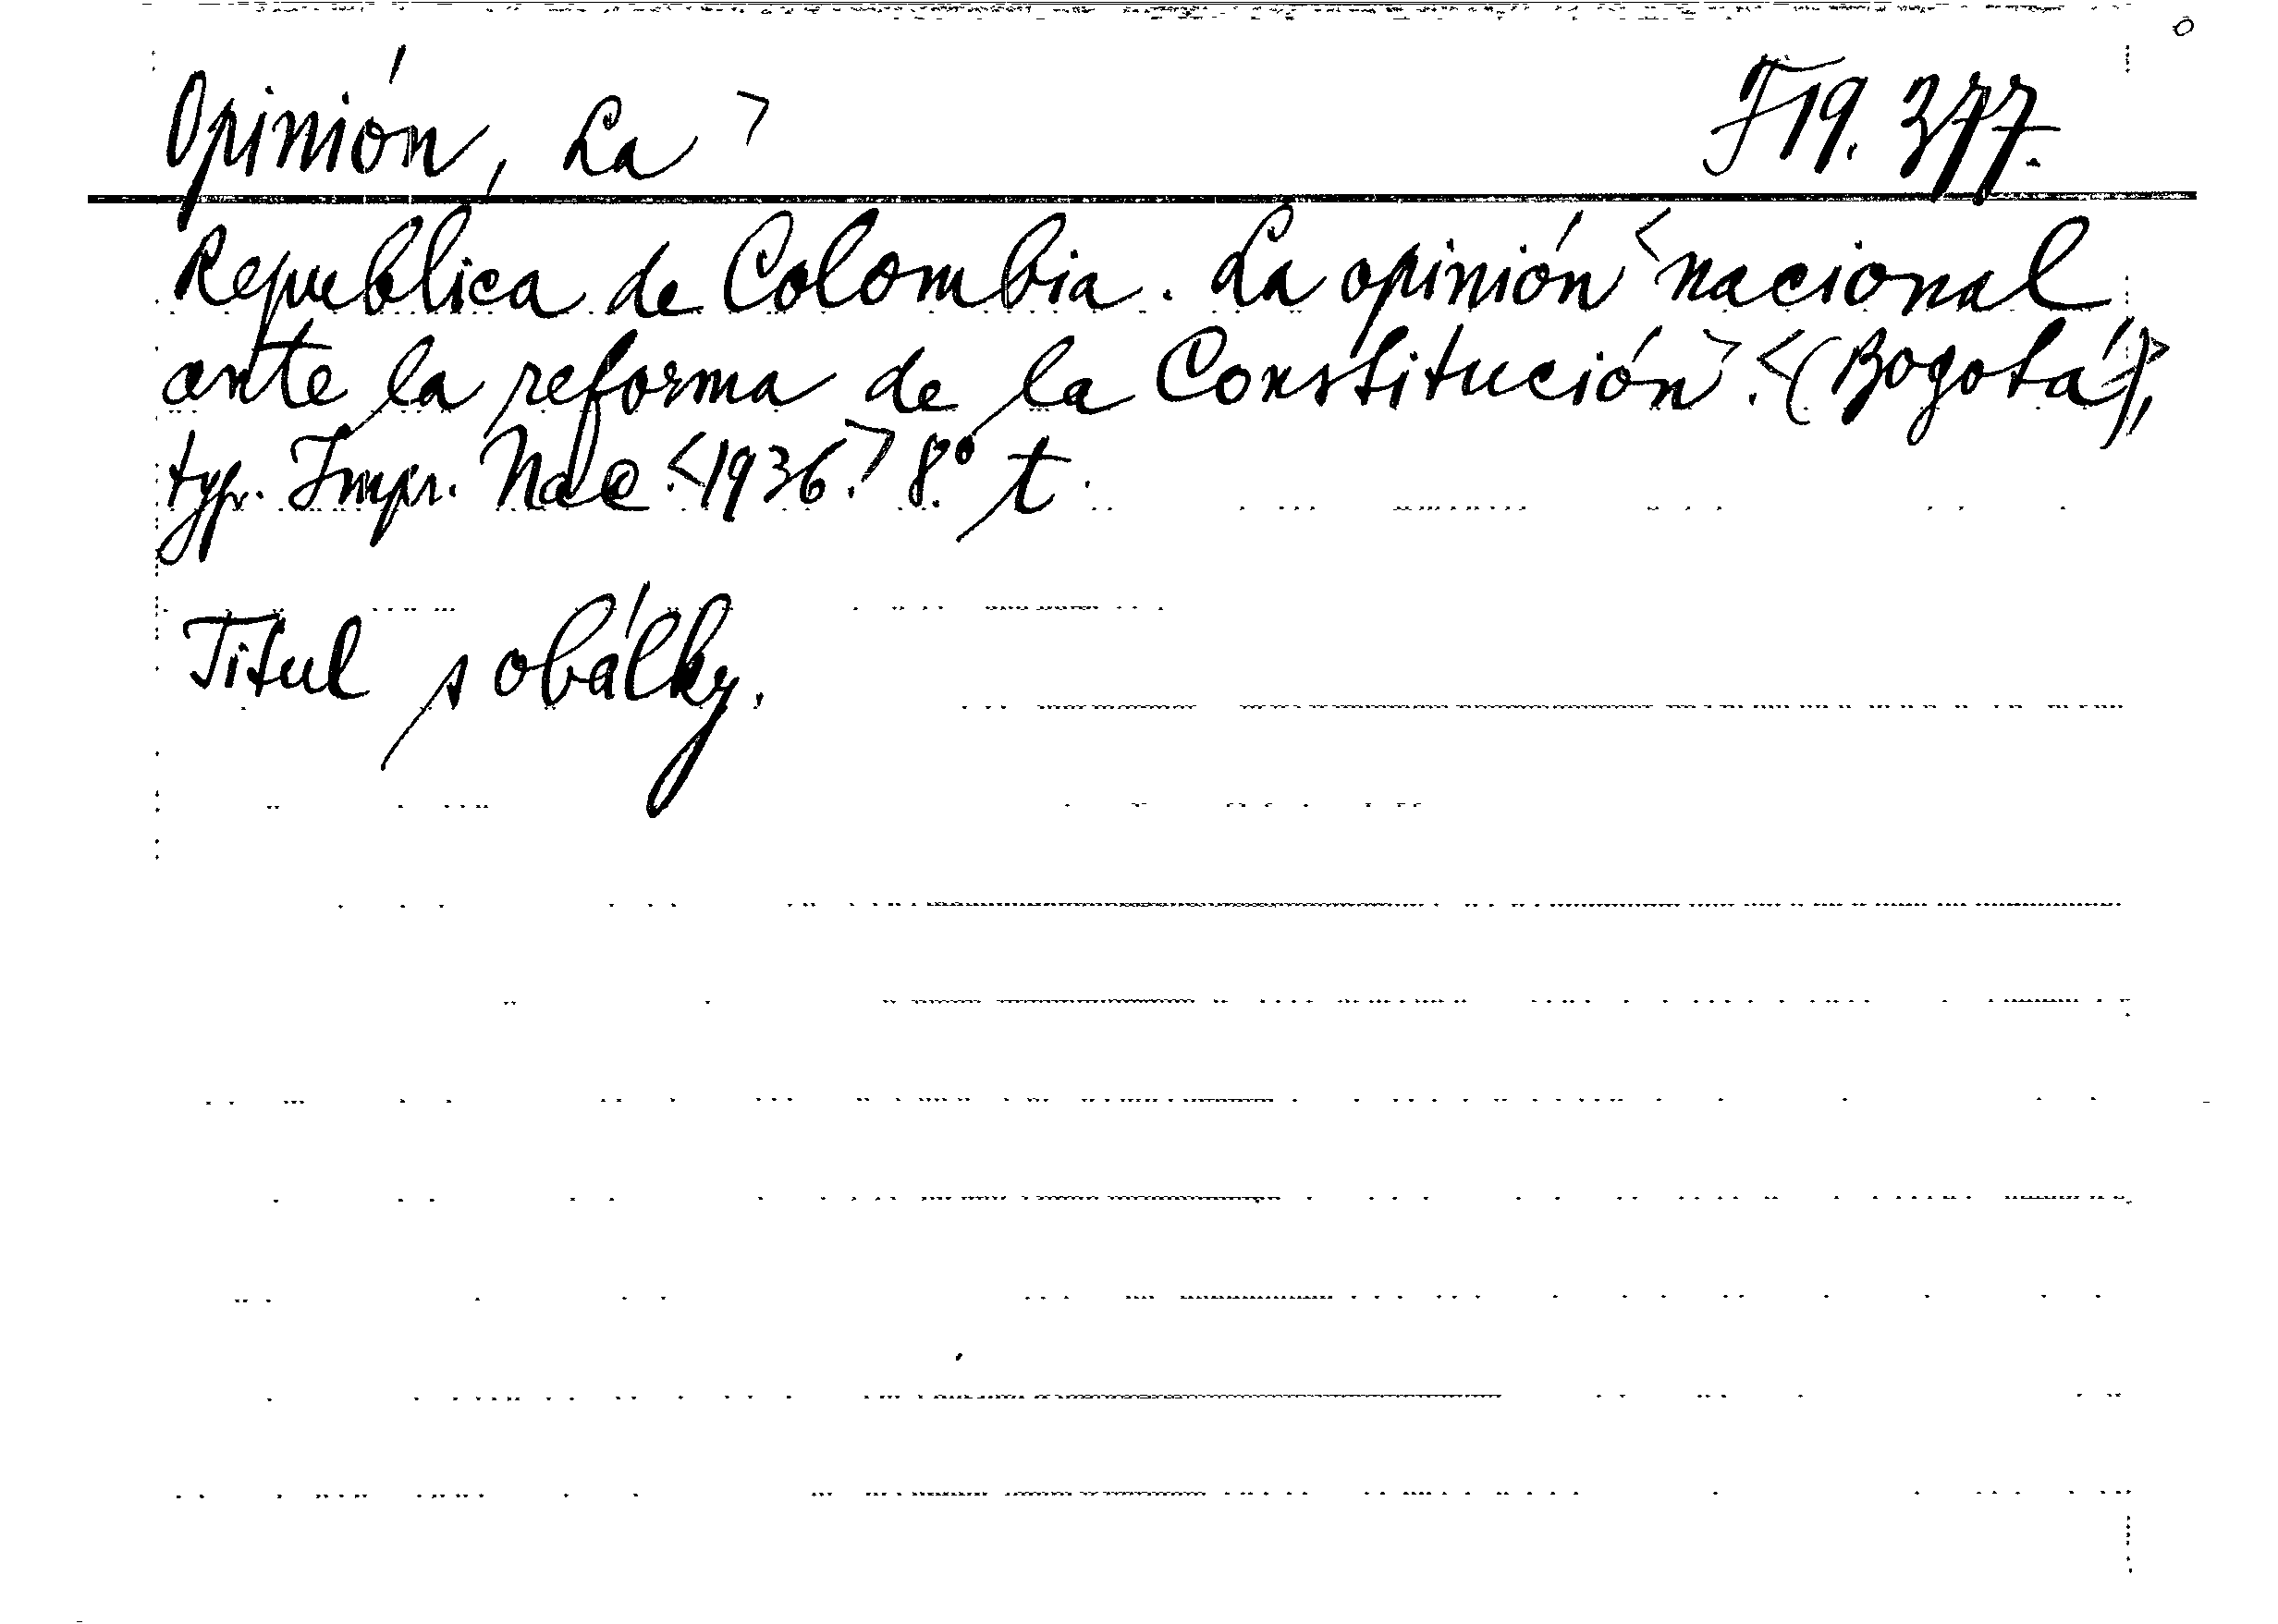 Opinión, La > F 19. 377.
Republica de Colombia. La opinión < nacional
ante la reforma de la Constitución >. <(Bogotá)>,
typ. Impr. Nac. <1936.> 8.° t.
Titul s obálky.